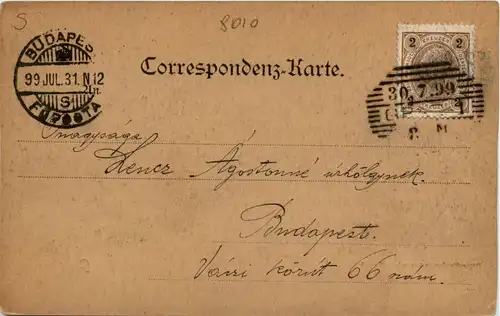 S
8010
BUDAPES
99 JUL. 31. N 12
S
2 2
Correspondenz-Karte.
30.7.99
Őnagysága
Lencz Ágostonné úrhölgynek.
Budapest.
Váczi körút 66 szám.